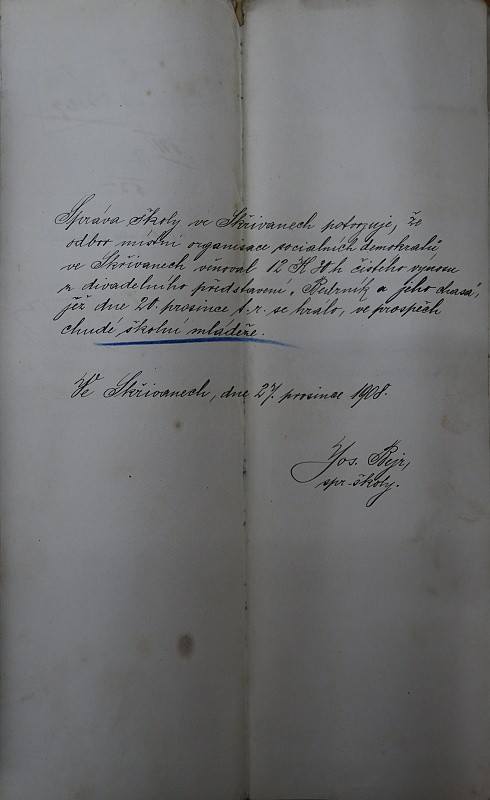 Správa školy ve Skřivanech potvrzuje, že
odbor místní organisace socialních demokratů
ve Skřivanech věnoval 12 K 30 h čistého výnosu
z divadelního představení „ a jeho chasa",
jež dne 20. prosince t. r. se hrálo, ve prospěch
chudé školní mládeže.
Ve Skřivanech, dne 27. prosince 1908.
Jos. Bejr,
spr. školy.